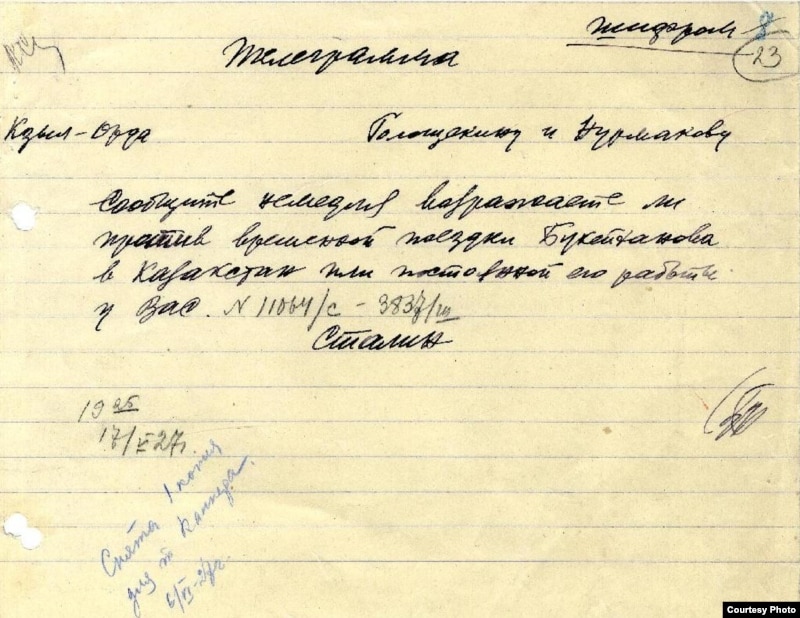 шифром
23
Телеграмма
Кзыл-Орда Голощекину и Нурмакову
Сообщите немедля возражаете ли
против временной поездки Букейханова
в Казакстан или постоянной его работы
у Вас. N 11064/с - 3837/ш
Сталин
19 25
17/V 27г.
Снята 1 копия
для т. Каннера.
6/VI-27г.
Courtesy Photo